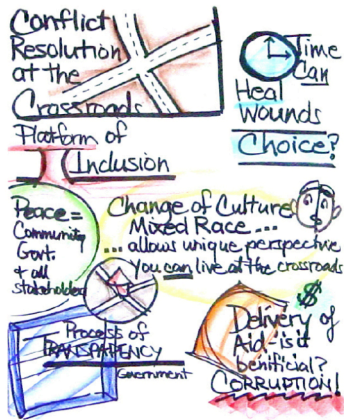 Conflict
Resolution
at the
Crossroads
Time
Can
Heal
Wounds
Choice?
Platform of
Inclusion
Peace =
Community
Govt.
& all
stakeholders
Change of Culture
Mixed Race ...
... allows unique perspective
You can live at the crossroads
Process of
TRANSPARENCY
Government
$
Delivery of
Aid - is it
benificial?
CORRUPTION!